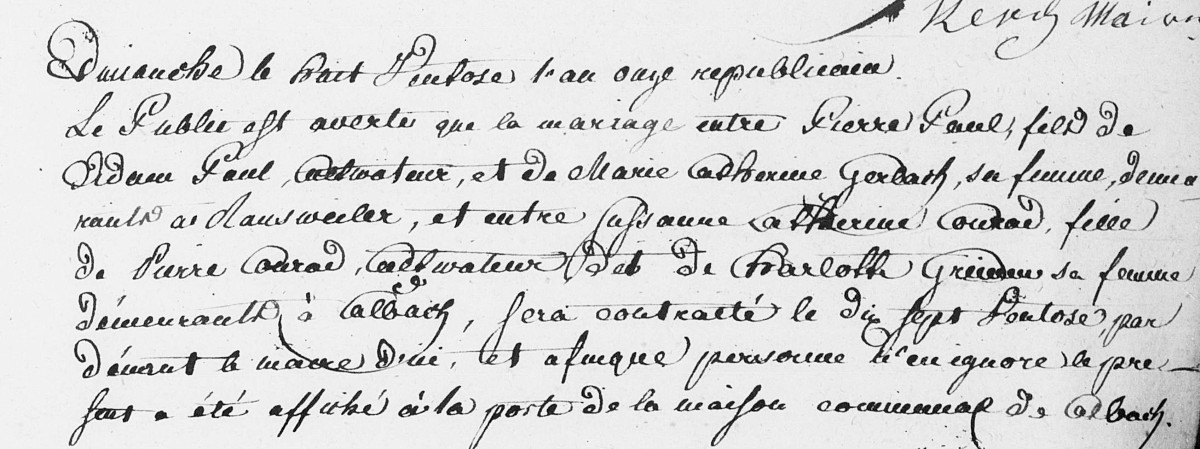 Maire
Dimanche le huit Ventose l'an onze republicain.
Le Public est averti que la mariage entre Pierre Paul, fils de
Adam Paul, cultivateur, et de Marie Catherine Gerlach, sa femme, demeu
rants à Ransweiler, et entre Sussanne Catherine Conrad, fille
de Pierre Conrad, cultivateur et de Charlotte sa femme
démeurants à Calbach, sera contracté le dix sept Ventose, par
dévant le maire et afinque personne n'en ignore le pre-
sent a été affiché à la porte de la maison communal de Calbach.